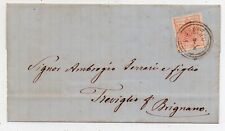 Signor Ambrogio Ferrari e figlio
Treviglio p. Brignano